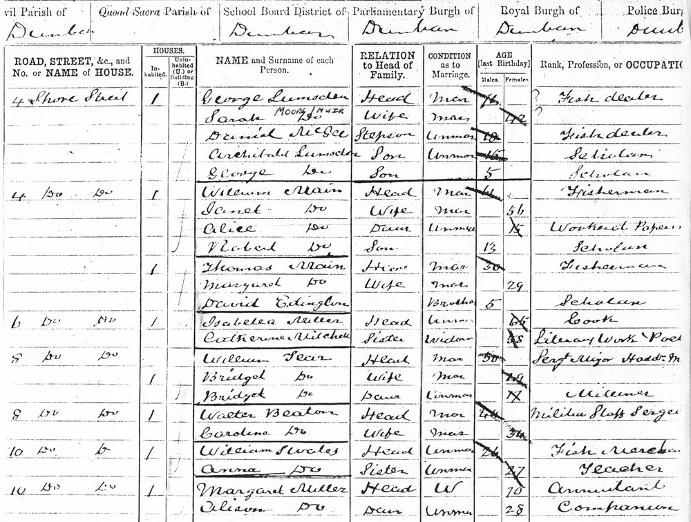 vil Parish of Quoad Sacra Parish of School Board District of Parliamentary Burgh of Royal Burgh of Police Bur
Dunbar Dunbar Dunbar Dunbar Dunb
ROAD, STREET, &c., and No. or NAME of HOUSE. HOUSES. In-habited. Unin-habited (U.) or Building (B.) NAME and Surname of each Person. RELATION to Head of Family. CONDITION as to Marriage. AGE (last Birthday) Males. Females. Rank, Profession, or OCCUPATIO
4 Shore Street 1 George Lumsden Head Mar ? Fish dealer
Sarah Do MOORE/MUIR Wife Mar 42 ?
Daniel McGee Stepson Unmar 18 Fish dealer
Archibald Lumsden Son Unmar 15 Scholar
George Do Son 5 Scholar
4 Do Do 1 William Main Head Mar 61 Fisherman
Janet Do Wife Mar 56
Alice Do Daur Unmar 15 Worker Paper
Robert Do Son 13 Scholar
1 Thomas Main Head Mar 30 Fisherman
Margaret Do Wife Mar 29
David Brother 5 Scholar
6 Do Do 1 Isabella Miller Head Unmar 65 Cook
Catherine Mitchell Sister Widow 58 Literary Work Poet
8 Do Do William Head Mar 50 Sergt Major Hadd. M
1 Bridget Do Wife Mar
Bridget Do Daur Unmar Milliner
8 Do Do 1 Walter Beaton Head Mar 44 Militia Staff Serge
Caroline Do Wife Mar 34
10 Do Do 1 William Swales Head Unmar 26 Fish Merchan
Anna Do Sister Unmar 27 Teacher
10 Do Do 1 Margaret Miller Head W 70 Annuitant
Alison Do Daur Unmar 28 Companion